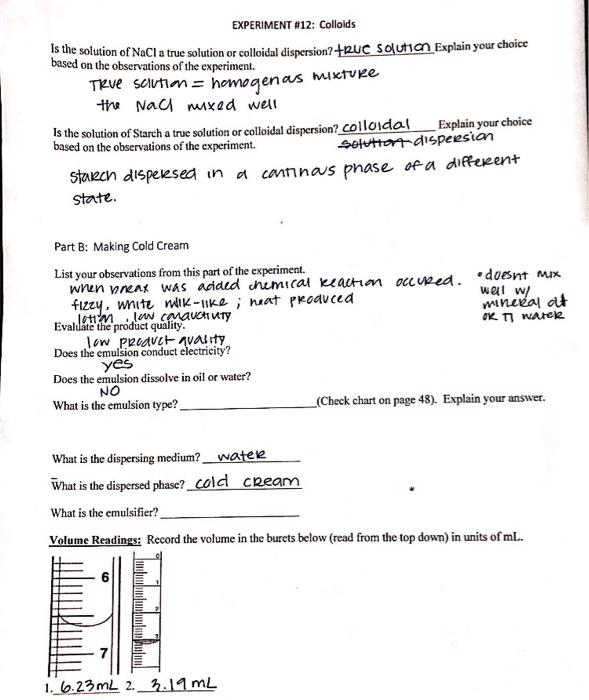 EXPERIMENT #12: Colloids
Is the solution of NaCl a true solution or colloidal dispersion? true solution Explain your choice
based on the observations of the experiment.
True solution = homogenous mixture
the NaCl mixed well
Is the solution of Starch a true solution or colloidal dispersion? colloidal Explain your choice
based on the observations of the experiment. solution dispersion
starch dispersed in a continous phase of a different
state.
Part B: Making Cold Cream
List your observations from this part of the experiment.
when borax was added chemical reaction occured.
fizzy, white milk-like ; heat produced
lotion, low conductivity
• doesnt mix
well w/
mineral oil
or TI water
Evaluate the product quality.
low product quality
Does the emulsion conduct electricity?
yes
Does the emulsion dissolve in oil or water?
NO
What is the emulsion type? (Check chart on page 48). Explain your answer.
What is the dispersing medium? water
What is the dispersed phase? cold cream
What is the emulsifier?
Volume Readings: Record the volume in the burets below (read from the top down) in units of mL.
6
7
0
1
2
3
1. 6.23mL 2. 3.19 mL